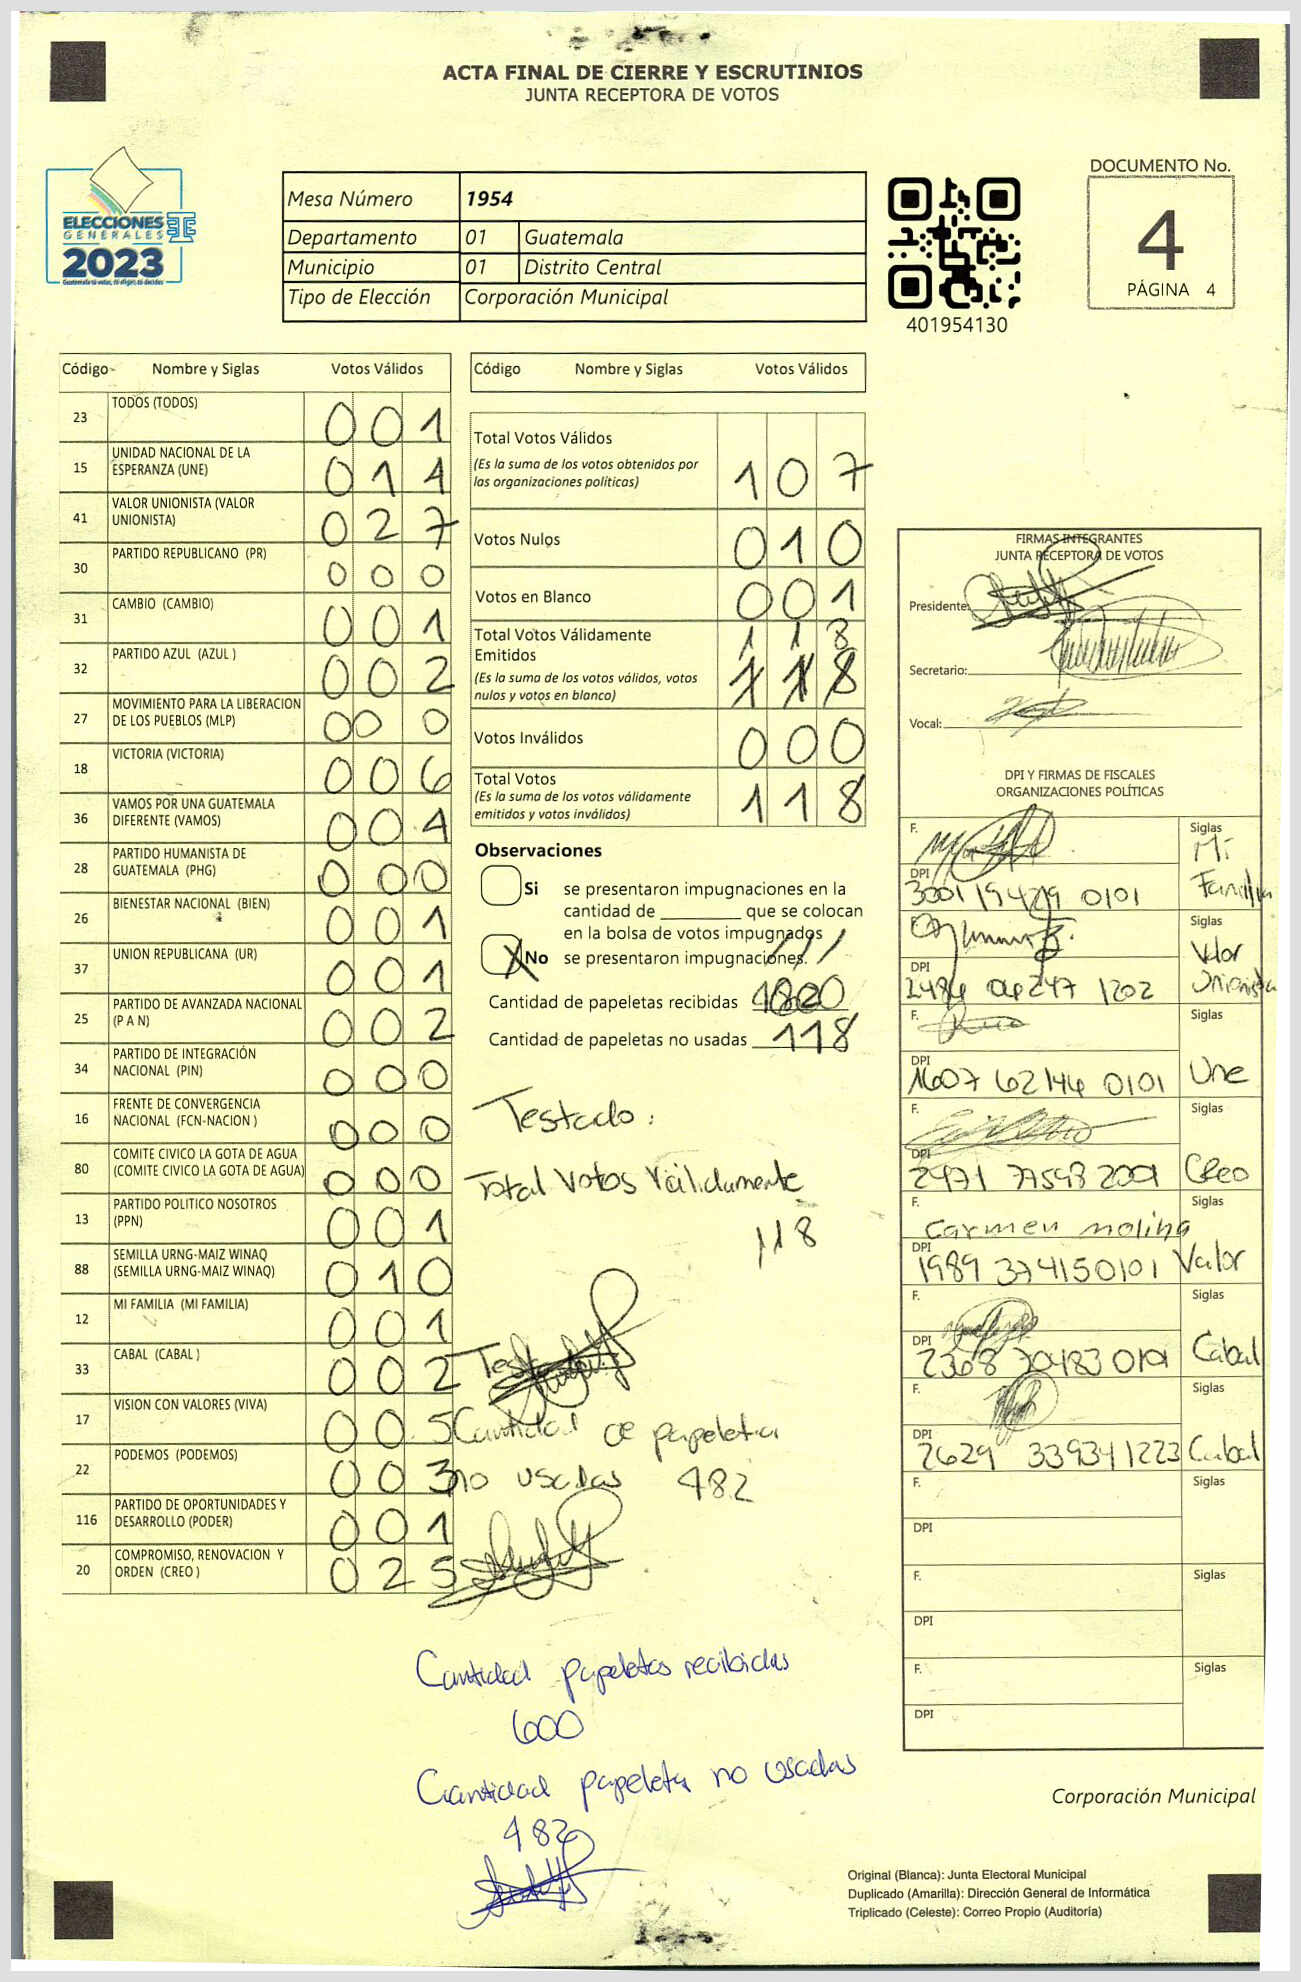 ACTA FINAL DE CIERRE Y ESCRUTINIOS
JUNTA RECEPTORA DE VOTOS
ELECCIONES
GENERALES
2023
Mesa Número 1954
Departamento 01 Guatemala
Municipio 01 Distrito Central
Tipo de Elección Corporación Municipal
401954130
DOCUMENTO No.
4
PÁGINA 4
Código Nombre y Siglas Votos Válidos
23 TODOS (TODOS) 0 0 1
15 UNIDAD NACIONAL DE LA ESPERANZA (UNE) 0 1 4
41 VALOR UNIONISTA (VALOR UNIONISTA) 0 2 7
30 PARTIDO REPUBLICANO (PR) 0 0 0
31 CAMBIO (CAMBIO) 0 0 1
32 PARTIDO AZUL (AZUL ) 0 0 2
27 MOVIMIENTO PARA LA LIBERACION DE LOS PUEBLOS (MLP) 0 0 0
18 VICTORIA (VICTORIA) 0 0 6
36 VAMOS POR UNA GUATEMALA DIFERENTE (VAMOS) 0 0 4
28 PARTIDO HUMANISTA DE GUATEMALA (PHG) 0 0 0
26 BIENESTAR NACIONAL (BIEN) 0 0 1
37 UNION REPUBLICANA (UR) 0 0 1
25 PARTIDO DE AVANZADA NACIONAL (P A N) 0 0 2
34 PARTIDO DE INTEGRACIÓN NACIONAL (PIN) 0 0 0
16 FRENTE DE CONVERGENCIA NACIONAL (FCN-NACION ) 0 0 0
80 COMITE CIVICO LA GOTA DE AGUA (COMITE CIVICO LA GOTA DE AGUA) 0 0 0
13 PARTIDO POLITICO NOSOTROS (PPN) 0 0 1
88 SEMILLA URNG-MAIZ WINAQ (SEMILLA URNG-MAIZ WINAQ) 0 1 0
12 MI FAMILIA (MI FAMILIA) 0 0 1
33 CABAL (CABAL ) 0 0 2
17 VISION CON VALORES (VIVA) 0 0 5
22 PODEMOS (PODEMOS) 0 0 3
116 PARTIDO DE OPORTUNIDADES Y DESARROLLO (PODER) 0 0 1
20 COMPROMISO, RENOVACION Y ORDEN (CREO ) 0 2 5
Código Nombre y Siglas Votos Válidos
Total Votos Válidos 1 0 7
(Es la suma de los votos obtenidos por
las organizaciones políticas)
Votos Nulos 0 1 0
Votos en Blanco 0 0 1
Total Votos Válidamente 1 1 8
Emitidos
(Es la suma de los votos válidos, votos
nulos y votos en blanco) 1 1 8
Votos Inválidos 0 0 0
Total Votos 1 1 8
(Es la suma de los votos válidamente
emitidos y votos inválidos)
Observaciones
Si se presentaron impugnaciones en la
cantidad de ________ que se colocan
en la bolsa de votos impugnados
X No se presentaron impugnaciones.
Cantidad de papeletas recibidas
Cantidad de papeletas no usadas 118
Testado:
Total Votos Válidamente
118
Cantidad de papeleta
no usadas 482
Cantidad papeletas recibidas
600
Cantidad papeleta no usadas
482
FIRMAS INTEGRANTES
JUNTA RECEPTORA DE VOTOS
Presidente:
Secretario:
Vocal:
DPI Y FIRMAS DE FISCALES
ORGANIZACIONES POLÍTICAS
F. Siglas Mi Familia
DPI 3001 19429 0101
F. Siglas Valor Unionista
DPI 2484 04247 1202
F. Siglas Une
DPI 1607 62144 0101
F. Siglas Creo
DPI 2471 77598 2001
F. Carmen Molina Siglas Valor
DPI 1989 37415 0101
F. Siglas Cabal
DPI 2368 70483 0101
F. Siglas Cabal
DPI 2629 33934 1223
F. Siglas
DPI
F. Siglas
DPI
F. Siglas
DPI
Corporación Municipal
Original (Blanca): Junta Electoral Municipal
Duplicado (Amarilla): Dirección General de Informática
Triplicado (Celeste): Correo Propio (Auditoría)